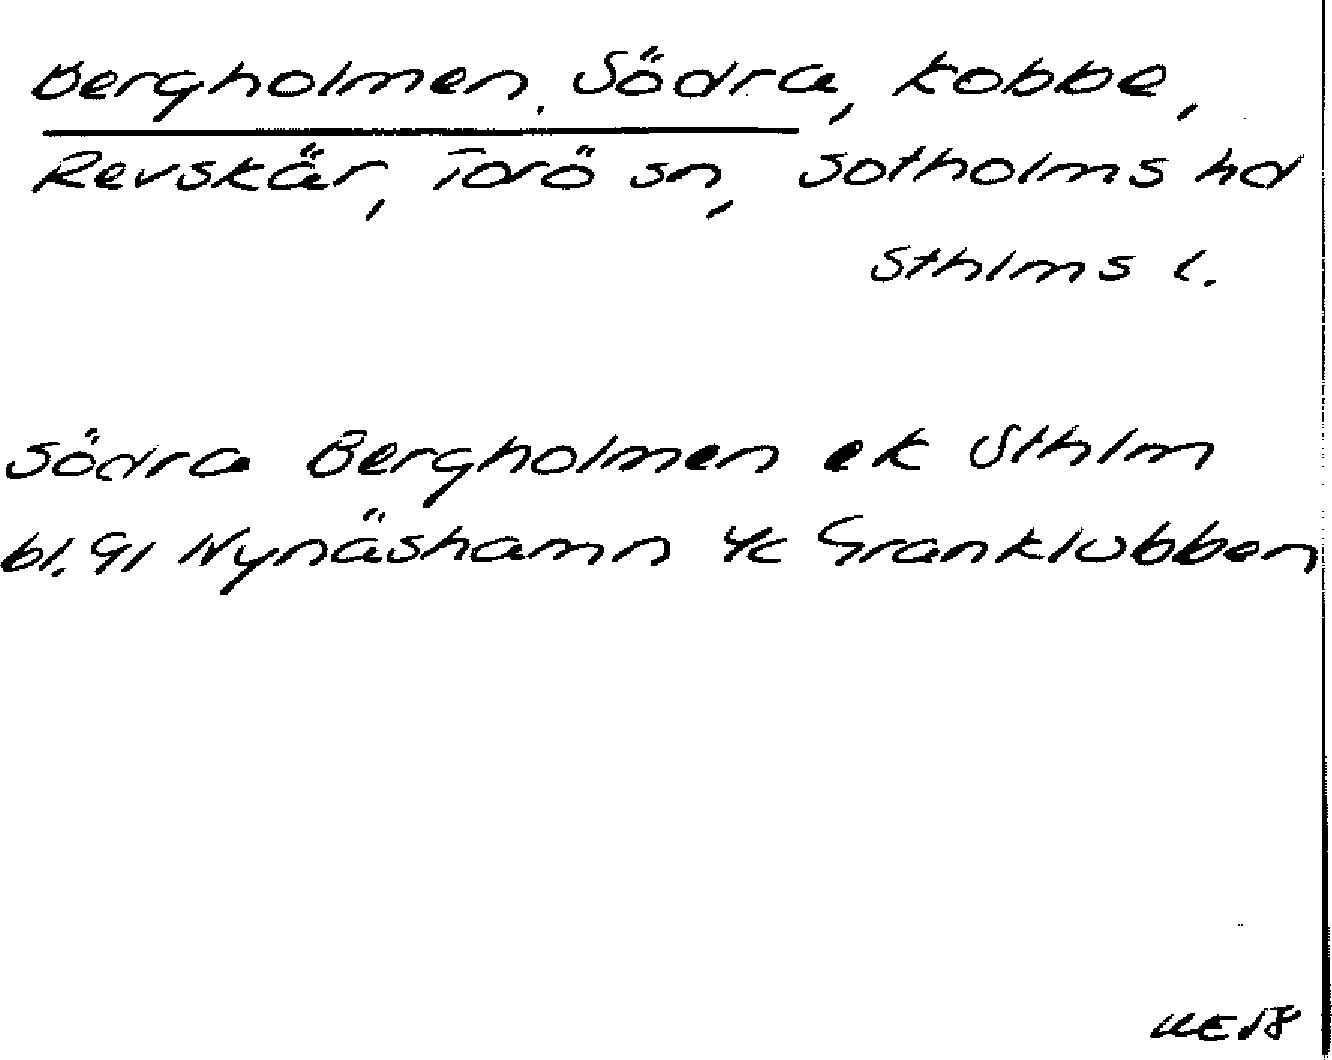 Bergholmen, Södra, kobbe,
Revskär, Torö sn, Sotholms hd
Sthlms l.
Södra Bergholmen ek Sthlm
bl. 91 Nynäshamn 4c Granklubben